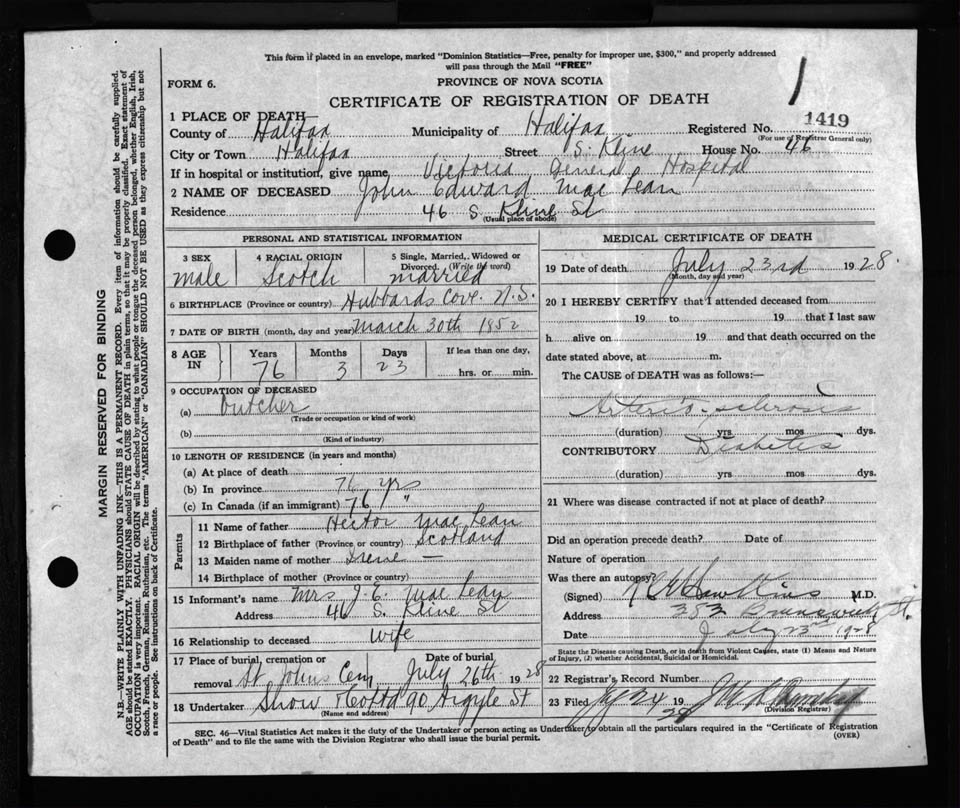 This form if placed in an envelope, marked "Dominion Statistics—Free, penalty for improper use, $300," and properly addressed
will pass through the Mail "FREE"
FORM 6.
PROVINCE OF NOVA SCOTIA
CERTIFICATE OF REGISTRATION OF DEATH
1
1 PLACE OF DEATH—
County of Halifax Municipality of Halifax Registered No. 1419
(For use of Registrar General only)
City or Town Halifax Street S. Kline House No. 46
If in hospital or institution, give name Victoria General Hospital
2 NAME OF DECEASED John Edward Mac Lean
Residence 46 S. Kline St
(Usual place of abode)
PERSONAL AND STATISTICAL INFORMATION
3 SEX 4 RACIAL ORIGIN 5 Single, Married, Widowed or
Divorced. (Write the word)
male Scotch married
6 BIRTHPLACE (Province or country) Hubbards Cove. N.S.
7 DATE OF BIRTH (month, day and year) March 30th 1852
8 AGE IN Years Months Days If less than one day,
76 3 23 hrs. or min.
9 OCCUPATION OF DECEASED
(a) butcher
(Trade or occupation or kind of work)
(b)
(Kind of industry)
10 LENGTH OF RESIDENCE (in years and months)
(a) At place of death
(b) In province 76 yrs
(c) In Canada (if an immigrant) 76 "
Parents
11 Name of father Hector Mac Lean
12 Birthplace of father (Province or country) Scotland
13 Maiden name of mother Irene —
14 Birthplace of mother (Province or country)
15 Informant's name Mrs J. E. Mac Lean
Address 46 S. Kline St
16 Relationship to deceased Wife
17 Place of burial, cremation or Date of burial
removal St Johns Cem July 26th 1928
18 Undertaker Snow 90 Argyle St
(Name and address)
MEDICAL CERTIFICATE OF DEATH
19 Date of death July 23rd 1928.
(Month, day and year)
20 I HEREBY CERTIFY that I attended deceased from
19 to 19 that I last saw
h alive on 19 and that death occurred on the
date stated above, at m.
The CAUSE of DEATH was as follows:—
Arterio-sclerosis
(duration) yrs mos dys.
CONTRIBUTORY Diabetes
(duration) yrs mos dys.
21 Where was disease contracted if not at place of death?
Did an operation precede death? Date of
Nature of operation
Was there an autopsy?
(Signed) M.D.
Address 353 Brunswick St.
Date July 23rd 1928
State the Disease causing Death, or in death from Violent Causes, state (1) Means and Nature
of Injury, (2) whether Accidental, Suicidal or Homicidal.
22 Registrar's Record Number
23 Filed July 24 1928
(Division Registrar)
SEC. 46—Vital Statistics Act makes it the duty of the Undertaker or person acting as Undertaker to obtain all the particulars required in the "Certificate of Registration
of Death" and to file the same with the Division Registrar who shall issue the burial permit.
(OVER)
MARGIN RESERVED FOR BINDING
N.B.—WRITE PLAINLY WITH UNFADING INK—THIS IS A PERMANENT RECORD. Every item of information should be carefully supplied.
AGE should be stated EXACTLY. PHYSICIANS should STATE CAUSE OF DEATH in plain terms, so that it may be properly classified. Exact statement of
OCCUPATION is very important. RACIAL ORIGIN will be described by stating to what people or tongue the deceased person belonged, whether English, Irish,
Scotch, French, German, Russian, Ruthenian, etc. The terms "AMERICAN" or "CANADIAN" SHOULD NOT BE USED as they express citizenship but not
a race or people. See instructions on back of Certificate.